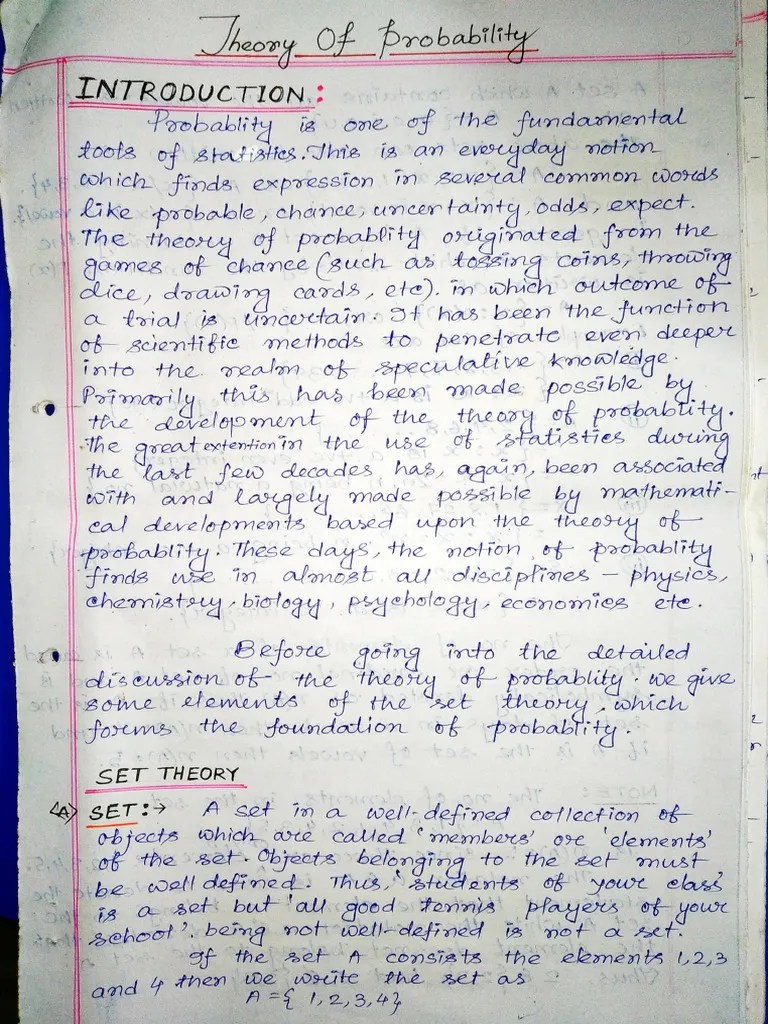 Theory Of Probability
INTRODUCTION:
Probablity is one of the fundamental
tools of statistics. This is an everyday notion
which finds expression in several common words
like probable, chance, uncertainty, odds, expect.
The theory of probablity originated from the
games of chance (such as tossing coins, throwing
dice, drawing cards, etc). in which outcome of
a trial is uncertain. It has been the function
of scientific methods to penetrate even deeper
into the realm of speculative knowledge.
Primarily this has been made possible by
the development of the theory of probablity.
The great extention in the use of statistics during
the last few decades has, again, been associated
with and largely made possible by mathemati-
cal developments based upon the theory of
probablity. These days, the notion of probablity
finds use in almost all disciplines - physics,
chemistry, biology, psychology, economics etc.
Before going into the detailed
discussion of the theory of probablity. we give
some elements of the set theory, which
forms the foundation of probablity.
SET THEORY
<A> SET:→ A set in a well-defined collection of
objects which are called 'members' or 'elements'
of the set. Objects belonging to the set must
be well defined. Thus, 'students of your class'
is a set but 'all good tennis players of your
school', being not well-defined is not a set.
If the set A consists the elements 1,2,3
and 4 then we write the set as
A = { 1, 2, 3, 4 }